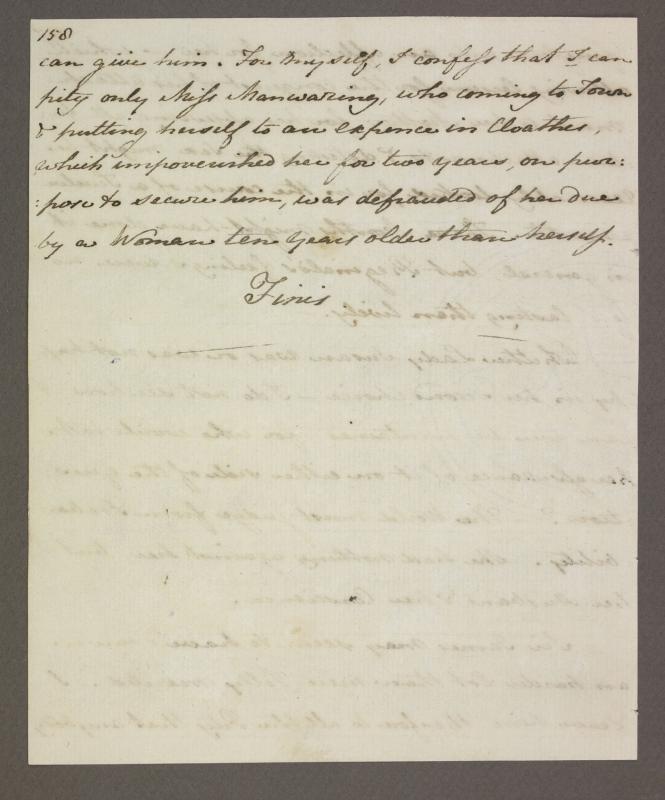 158
can give him. For myself, I confess that I can
pity only Miss Manwaring, who coming to Town
& putting herself to an expence in Cloathes,
which impoverished her for two years, on pur:
:pose to secure him, was defrauded of her due
by a Woman ten years older than herself.
Finis